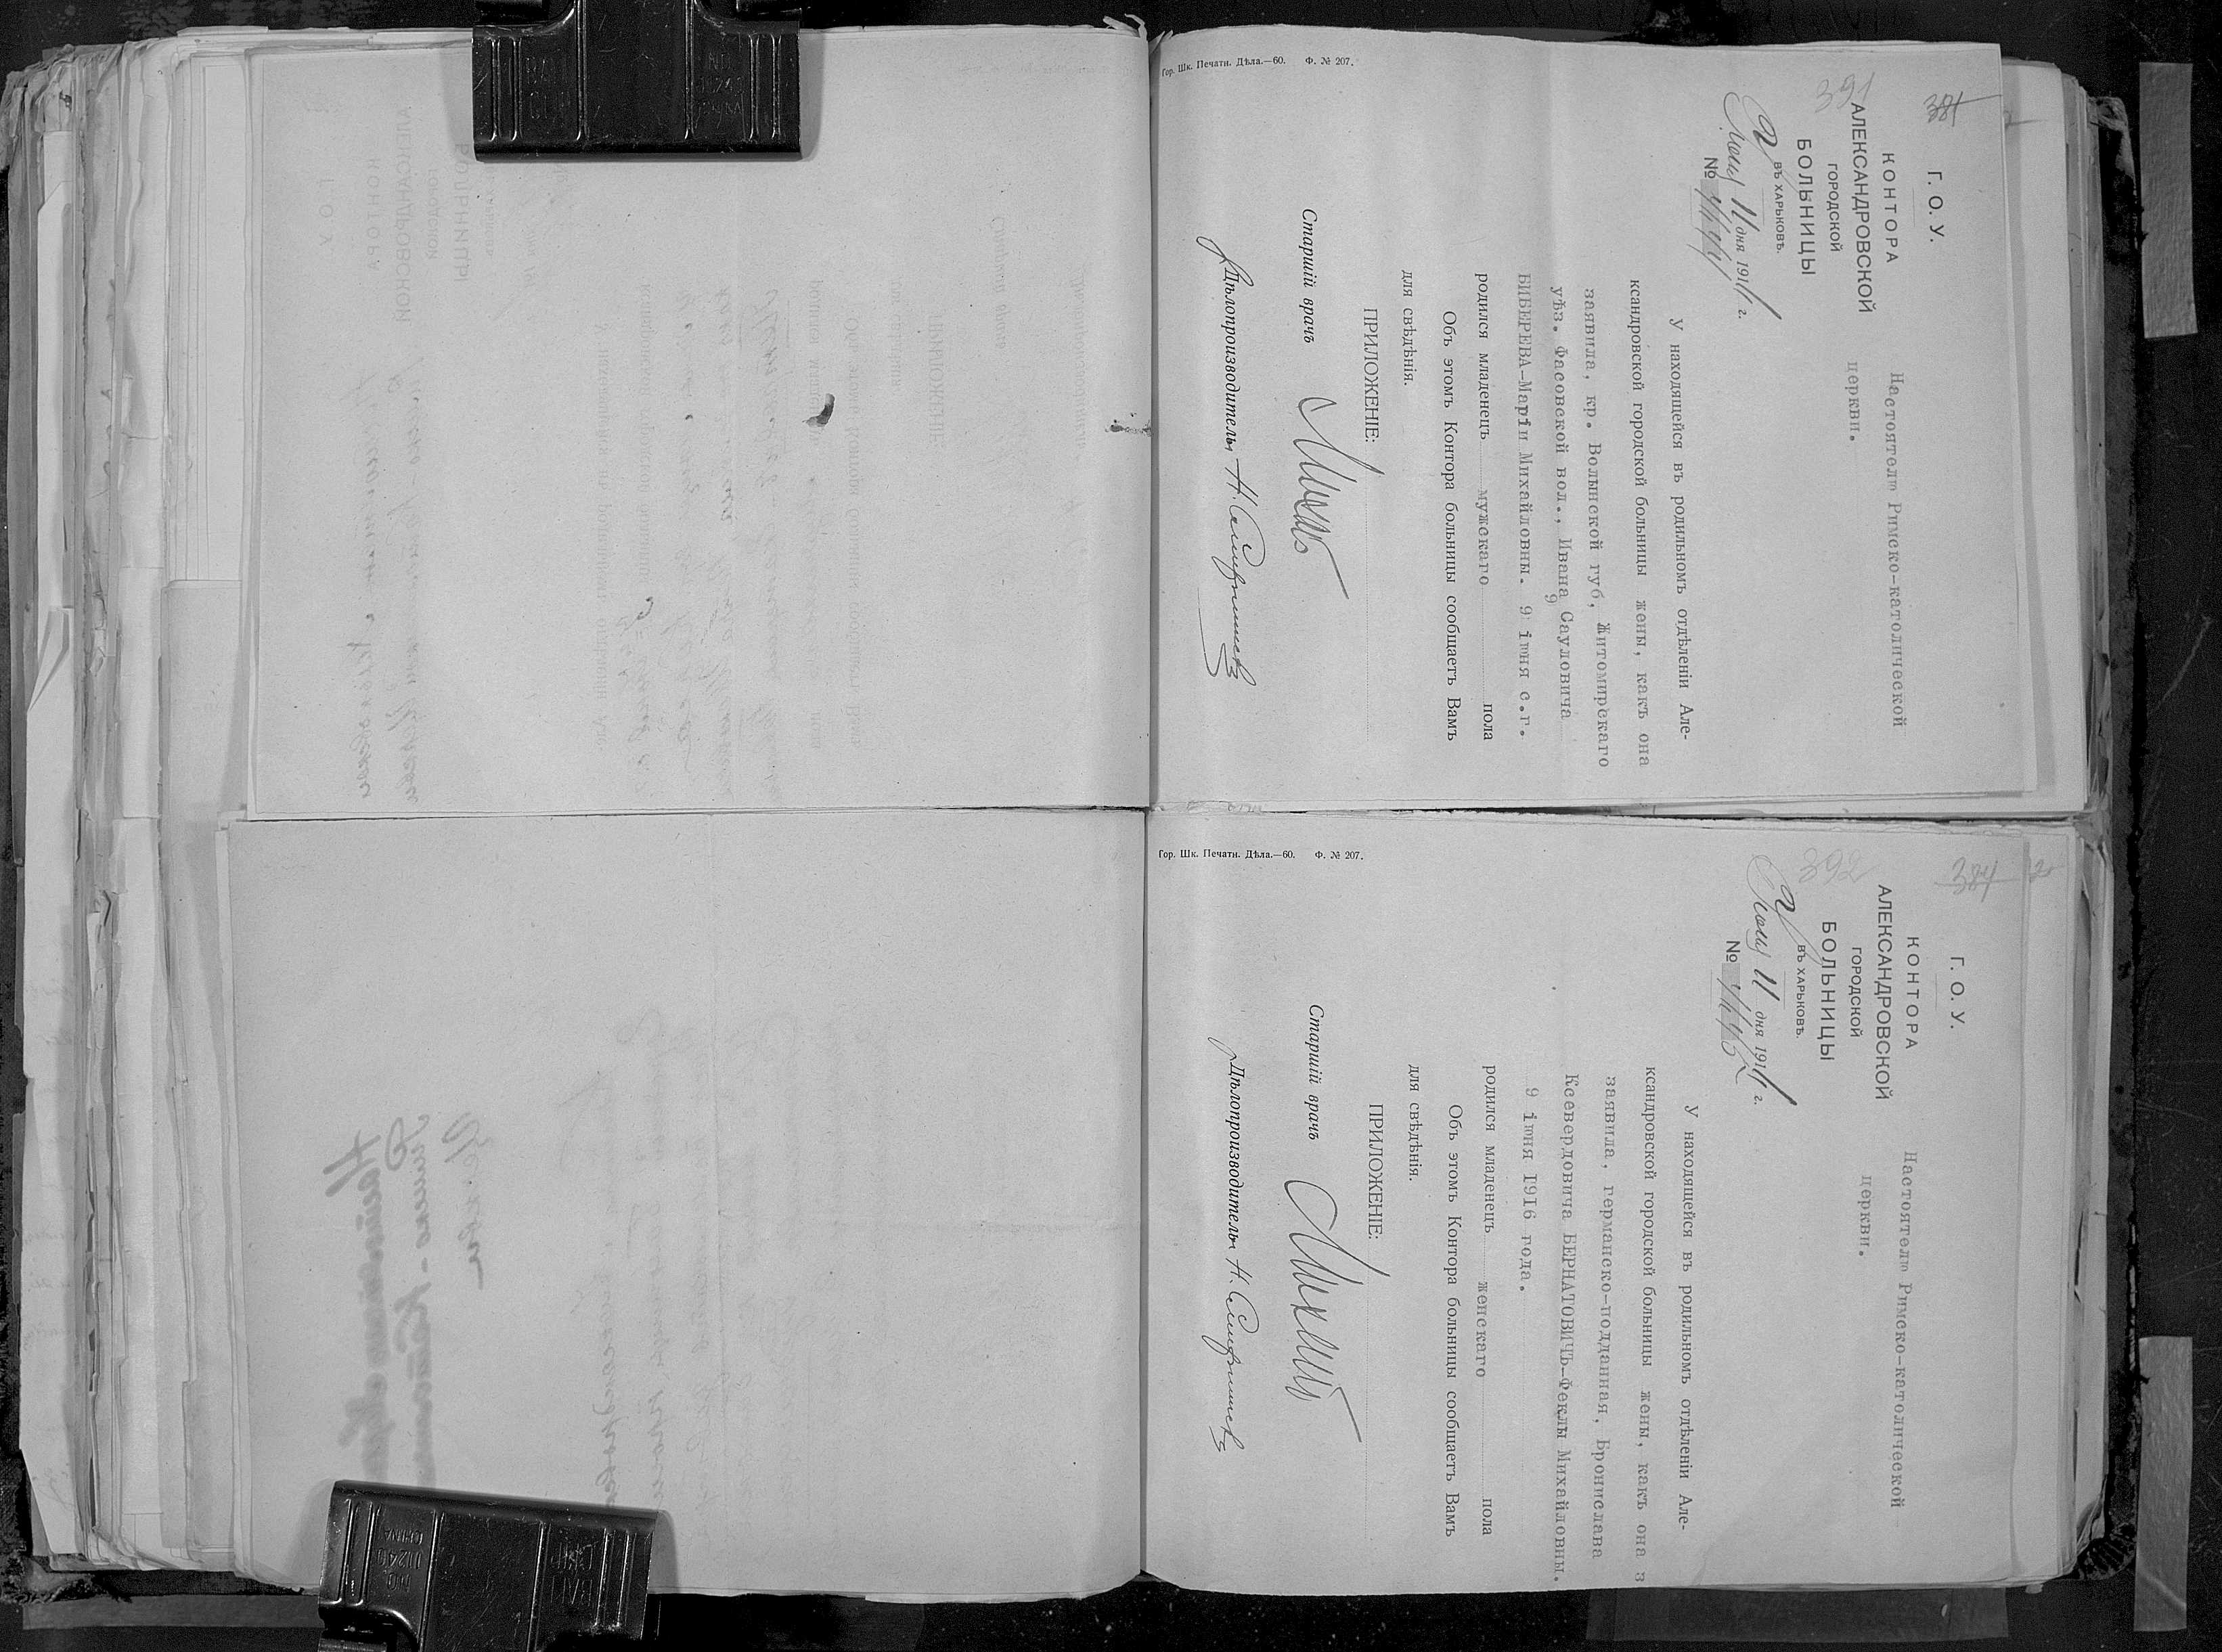 381
391
Г. О. У.
КОНТОРА
АЛЕКСАНДРОВСКОЙ
ГОРОДСКОЙ
БОЛЬНИЦЫ
ВЪ ХАРЬКОВѢ.
11 дня 1916 г.
№
Настоятелю Римско-католической
церкви.
У находящейся въ родильномъ отдѣленіи Але-
ксандровской городской больницы жены, какъ она
заявила, кр. Волынской губ, Житомирскаго
уѣз. Фасовской вол., Ивана Сауловича
БИБЕРЕВА-Маріи Михайловны. 9 іюня с.г.
родился младенецъ мужскаго пола
Объ этомъ Контора больницы сообщаетъ Вамъ
для свѣдѣнія.
ПРИЛОЖЕНІЕ:
Старшій врачъ
Дѣлопроизводитель
Гор. Шк. Печатн. Дѣла.—60. Ф. № 207.
384
392
Г. О. У.
КОНТОРА
АЛЕКСАНДРОВСКОЙ
ГОРОДСКОЙ
БОЛЬНИЦЫ
ВЪ ХАРЬКОВѢ.
11 дня 1916 г.
№
Настоятелю Римско-католической
церкви.
У находящейся въ родильномъ отдѣленіи Але-
ксандровской городской больницы жены, какъ она з
заявила, германско-подданная, Бронислава
Ксевердовича БЕРНАТОВИЧЪ-Феклы Михайловны.
9 іюня 1916 года.
родился младенецъ женскаго пола
Объ этомъ Контора больницы сообщаетъ Вамъ
для свѣдѣнія.
ПРИЛОЖЕНІЕ:
Старшій врачъ
Дѣлопроизводитель
Гор. Шк. Печатн. Дѣла.—60. Ф. № 207.